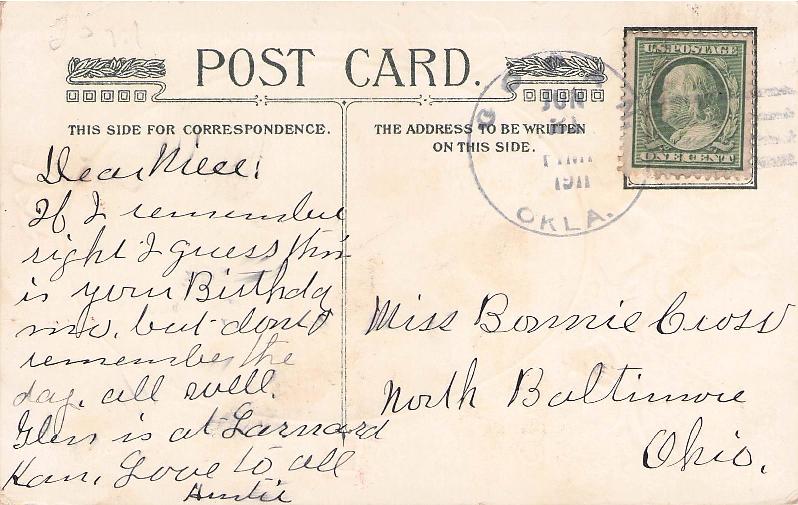 POST CARD.
THIS SIDE FOR CORRESPONDENCE.
THE ADDRESS TO BE WRITTEN
ON THIS SIDE.
U.S. POSTAGE
ONE CENT
JUN
1911
OKLA.
Dear Niece;
If I remember
right I guess this
is your Birthda
mo, but dont
remember the
day, all well.
Glen is at Larnard
Kan, Love to all
Auntie
Miss Bonnie Cross
North Baltimore
Ohio.